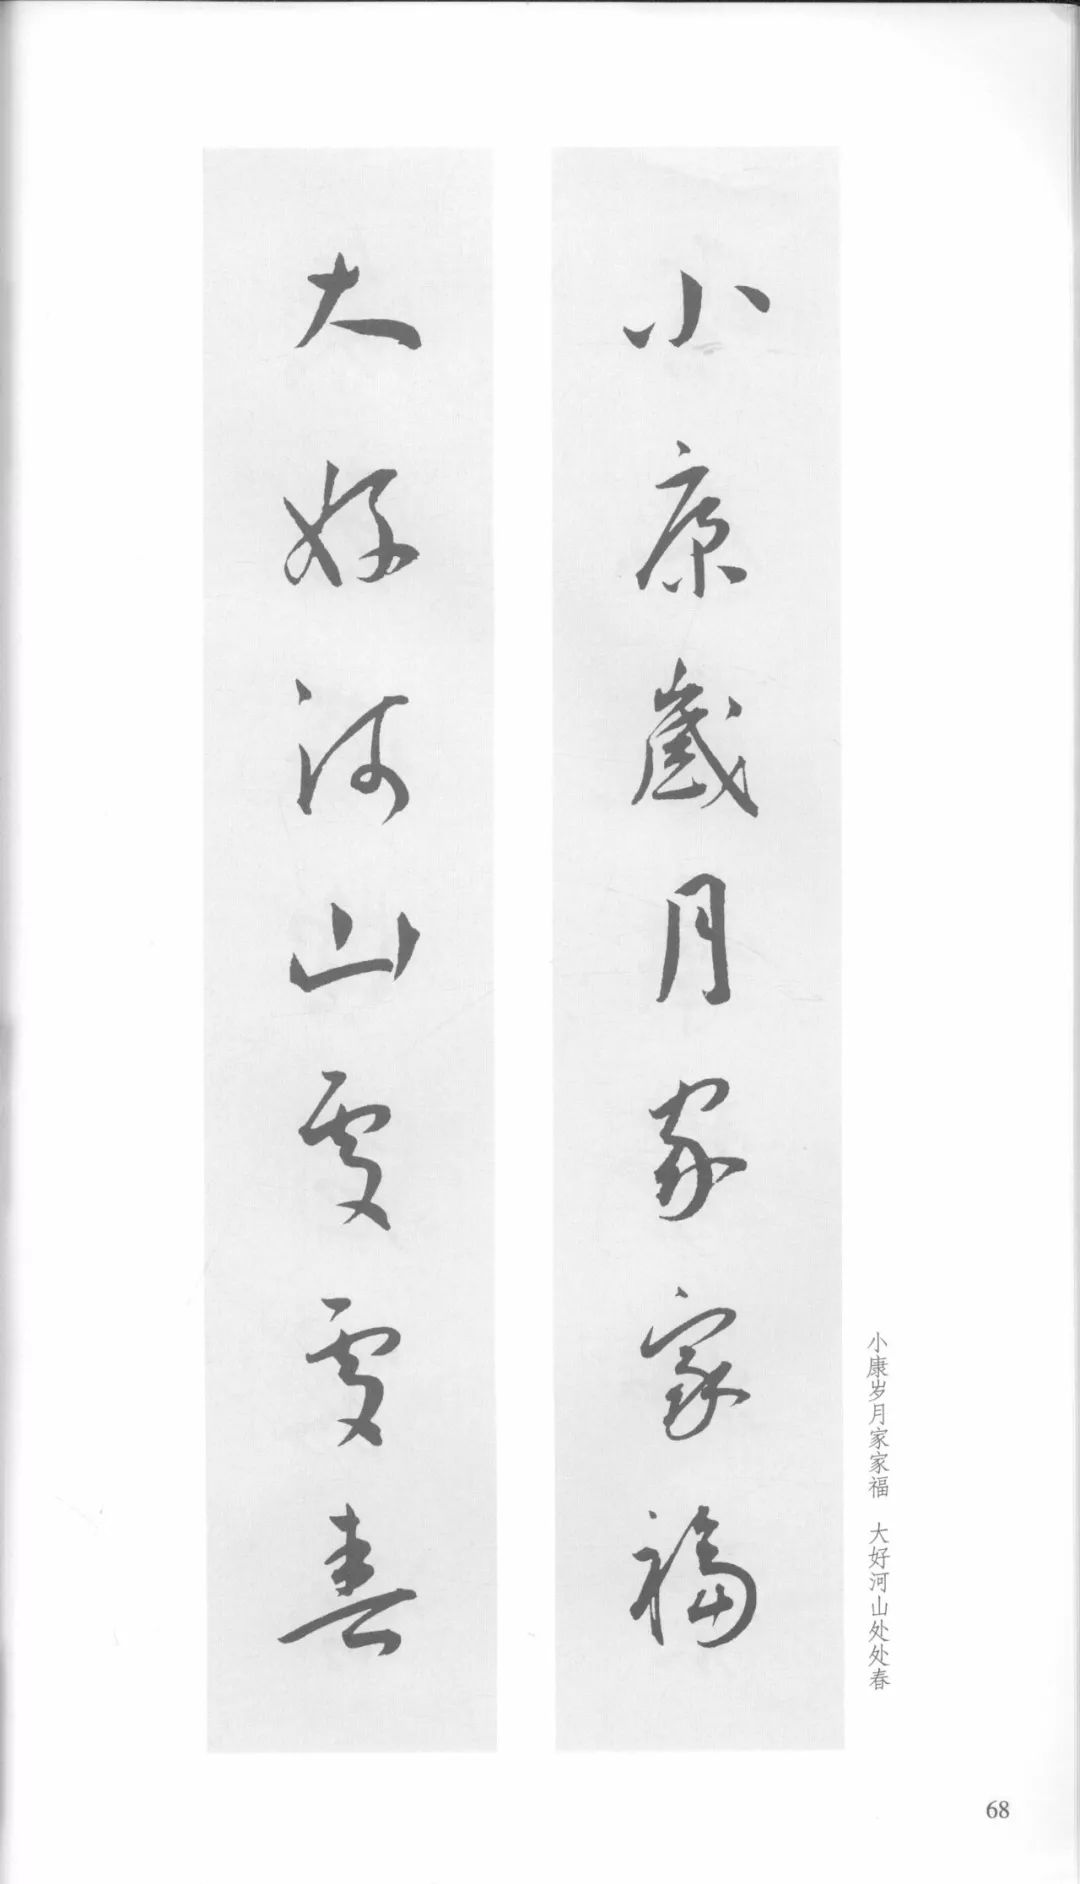 小康歲月家家福
大好河山處處春
小康岁月家家福 大好河山处处春
68